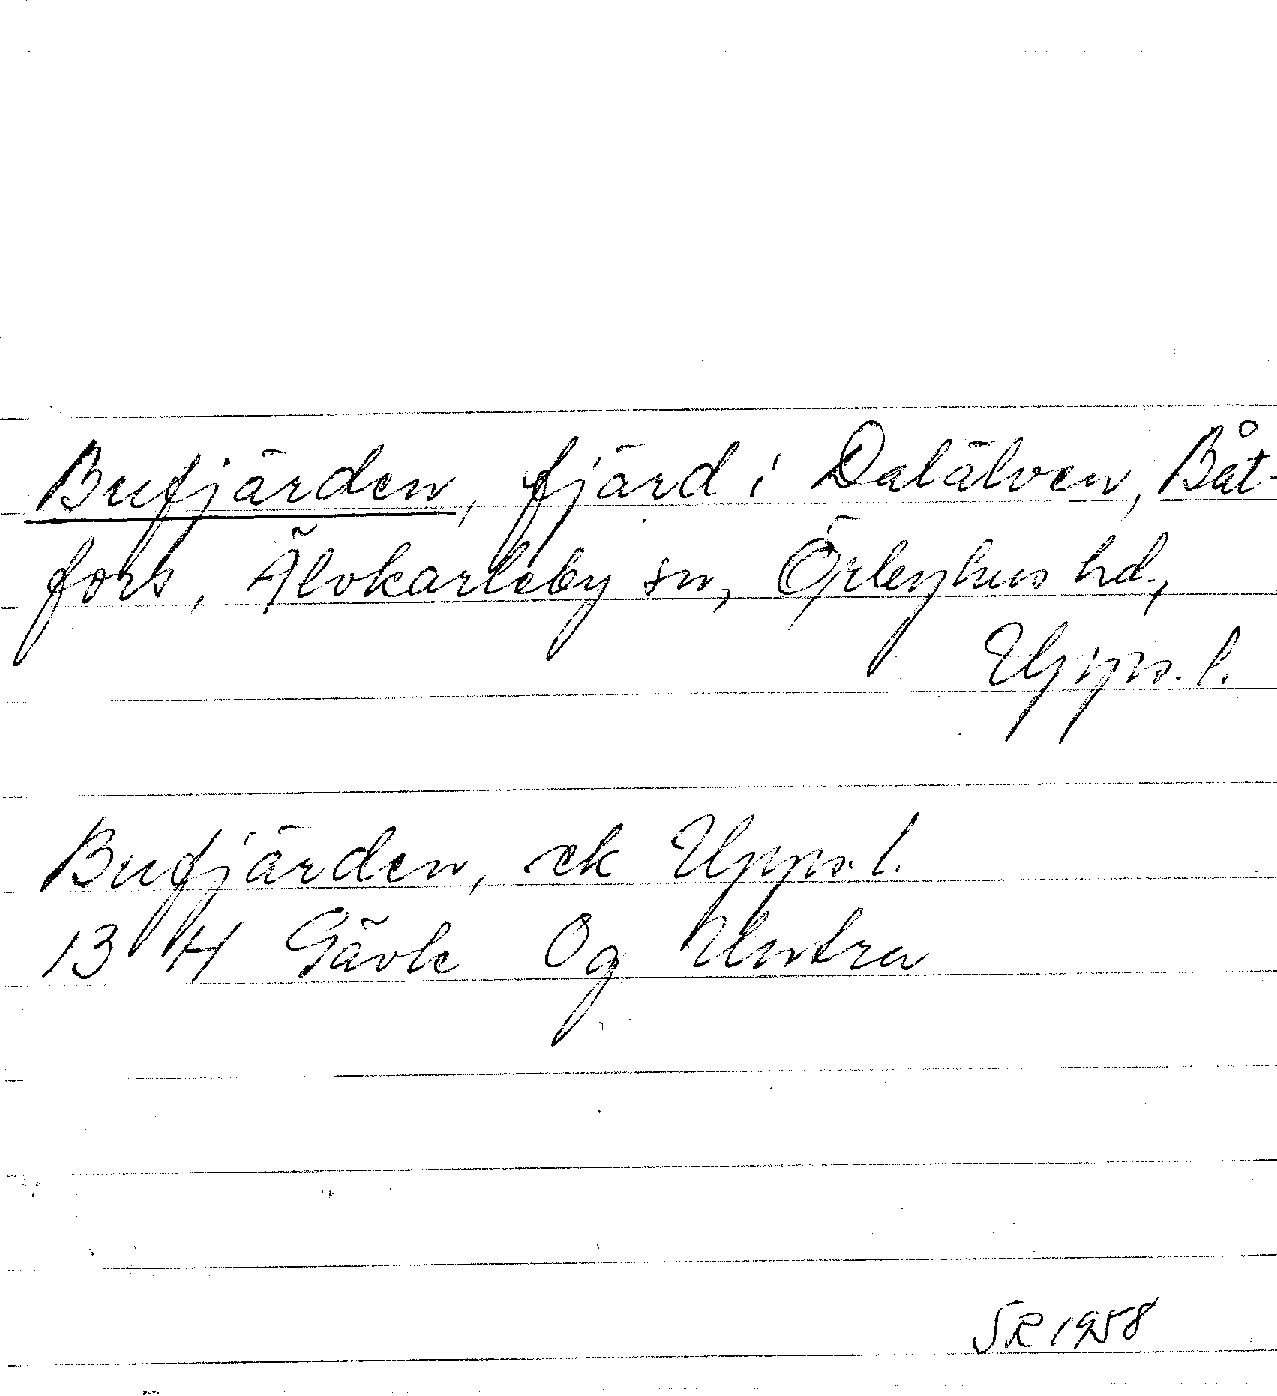 Bufjärden, fjärd i Dalälven, Båt-
fors, Älvkarleby sn, Örbyhus hd,
Upps. l.
Bufjärden, ek Upps. l.
13 H Gävle Og Untra
SR 1958